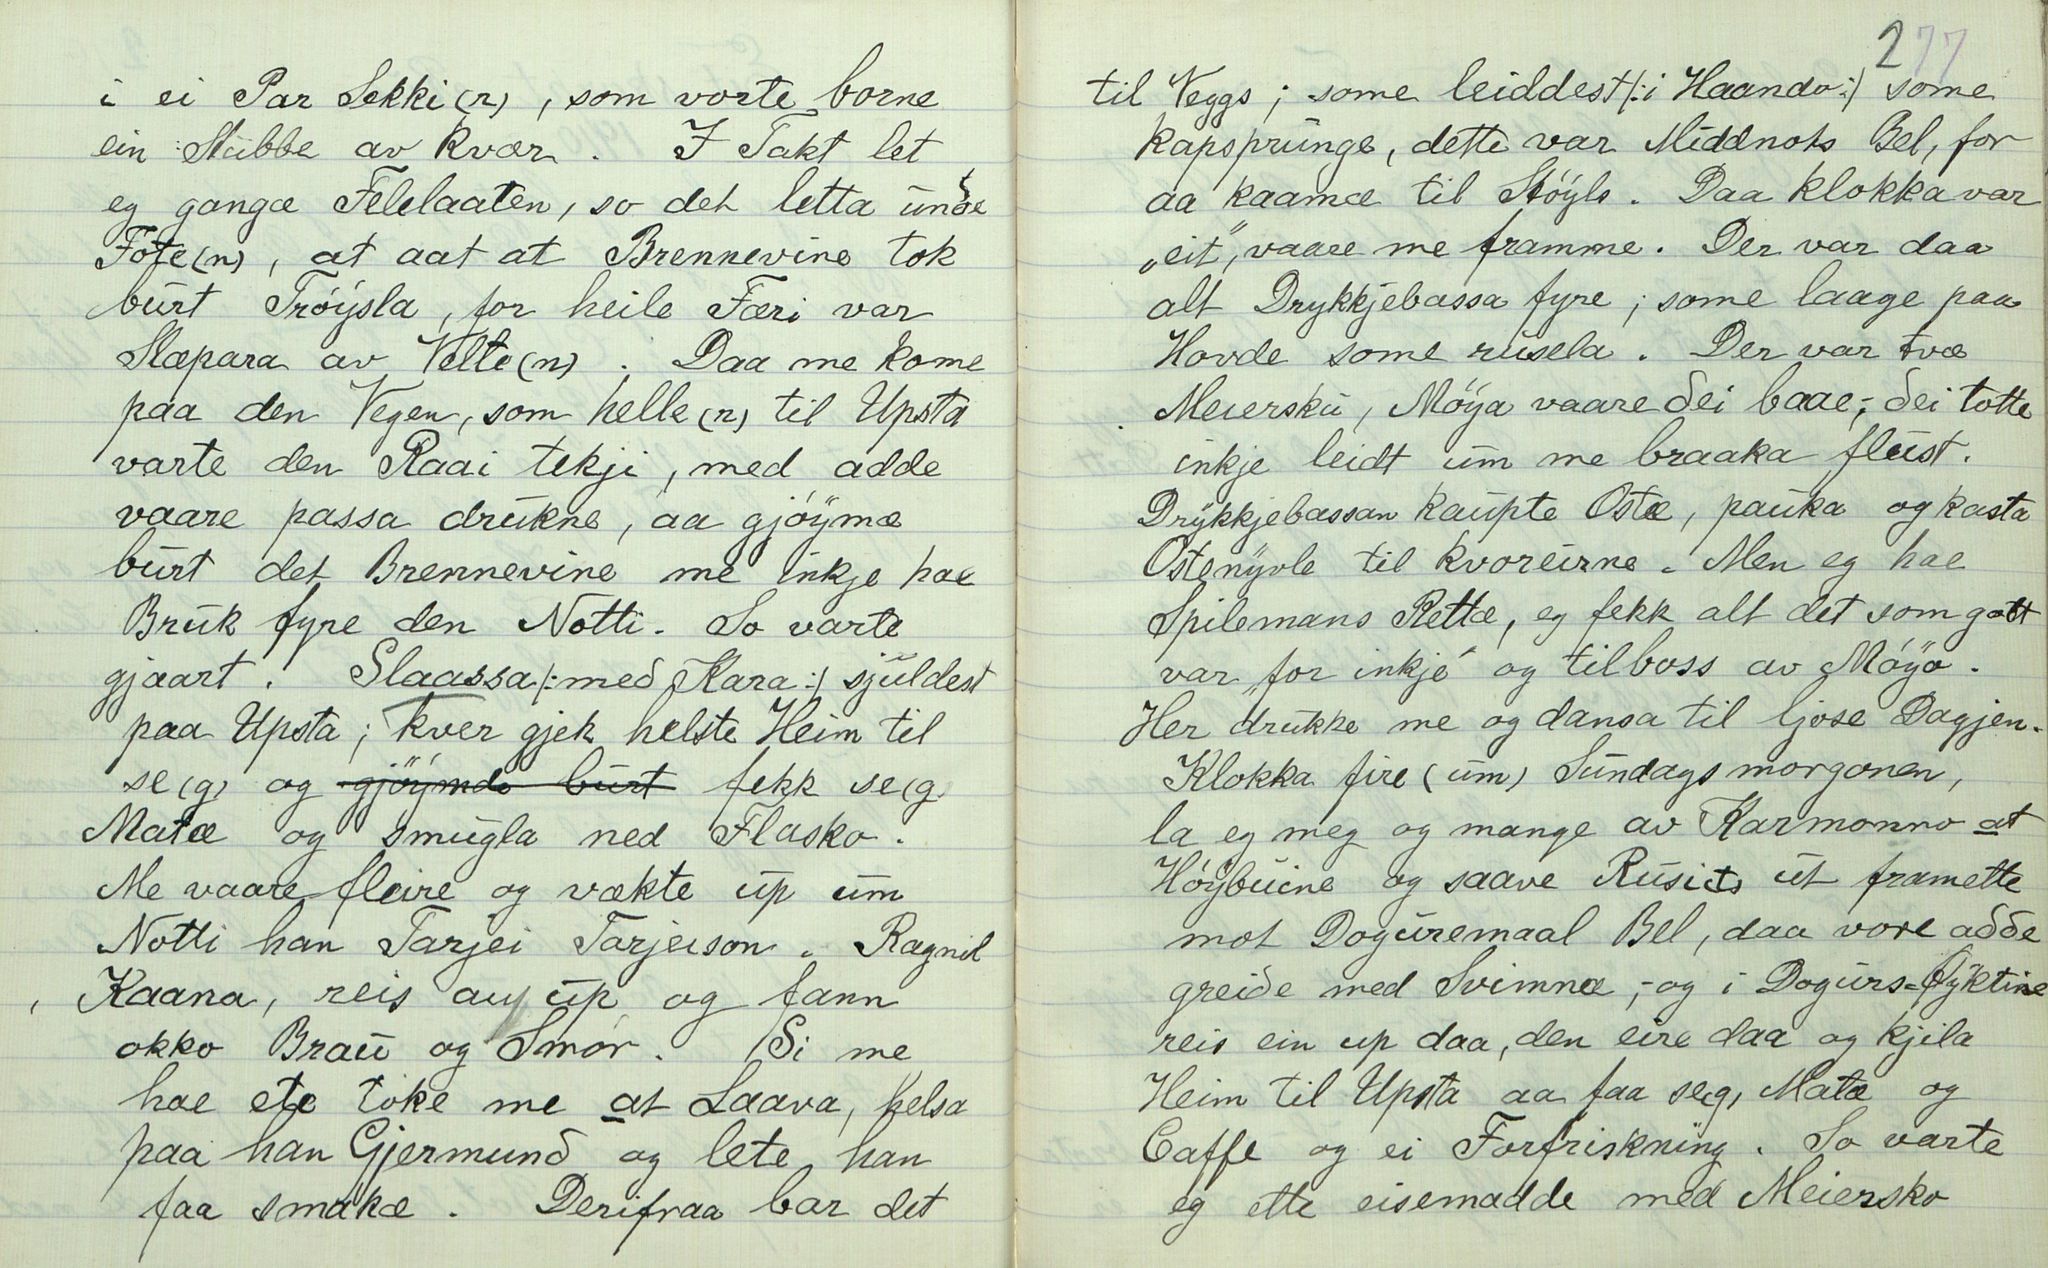 i ei Par Sekki(r), som vorte borne
ein Stubbe av kvær. I Takt let
eg gangæ Felelaaten, so det letta unde
Føte(n), at aat at Brennevine tok
burt Trøysla, for heile Færi var
Slæpara av Velte(n). Daa me kome
paa den Vegen, som helle(r) til Upsta
varte den Raai tekji, med adde
vaare passa drukne, aa gjøymæ
burt det Brennevine me inkje hae
Bruk fyre den Notti. So varte
gjaart. Slaassa /:med Kara:/ sjuldest
paa Upsta; kver gjek helste Heim til
se(g) og gjøymde burt fekk se(g)
Matæ og smugla ned Flasko.
Me vaare fleire og vækte up um
Notti han Tarjei Tarjeison. Ragnil
Kaana, reis au up og fann
okko Brau og Smør. Si me
hae ete toke me at Laava, helsa
paa han Gjermund og lete han
faa smakæ. Derifraa bar det
277
til Veggs; some leiddest /:i Haando:/ some
kapsprunge, dette var Middnots Bel, for
aa kaamæ til Støyls. Daa klokka var
„eit“, vaare me framme. Der var daa
alt Drykkjebassa fyre; some laage paa
Hovde some rusela. Der var tvæ
Meiersku, Møya vaare dei baae; dei totte
inkje leidt um me braaka fleust.
Drykkjebassan kaupte Ostæ, pauka og kasta
Ostenyvle til kvoreirne. Men eg hae
Spilemans Rettæ, eg fekk alt det som gott
var for inkje og tilboss av Møyo.
Her drukke me og dansa til ljose Dagjen.
Klokka fire (um) Sundagsmorgonen,
la eg meg og mange av Karmonno at
Høybuine og saave Rusien ut framette
mot Doguremaal Bel, daa vore adde
greide med Svimnæ; og i Dogurs-Øyktine
reis ein up daa, den eire daa og kjila
Heim til Upsta aa faa se(g) Matæ og
Caffe og ei Forfriskning. So varte
eg ette eisemadde med Meiersko